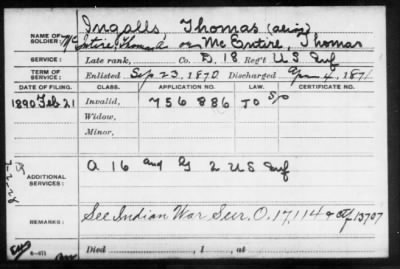 Ingalls, Thomas (alias)
NAME OF SOLDIER: McEntire, Thomas or McEntire, Thomas
SERVICE: Late rank, Co. D, 18 Reg't U S Inf
TERM OF SERVICE: Enlisted Sep 23, 1870 Discharged 4, 187
DATE OF FILING. CLASS. APPLICATION NO. LAW. CERTIFICATE NO.
1890 Feb 21 Invalid, 756886 S/O
Widow,
Minor,
ADDITIONAL SERVICES: A 16 and G 2 U S Inf
REMARKS: See Indian War Sur. O. 17,114 & Ctf 13707
Died , 1 , at